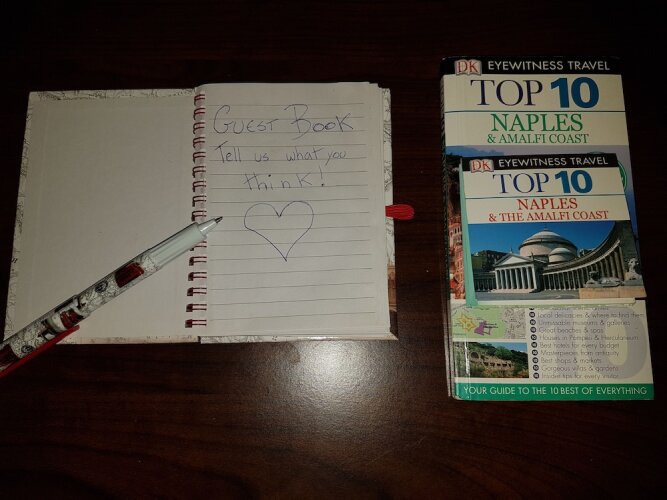 GUEST BOOK
Tell us what you
think!
DK EYEWITNESS TRAVEL
TOP 10
NAPLES
& AMALFI COAST
DK EYEWITNESS TRAVEL
TOP 10
NAPLES
& THE AMALFI COAST
Local delicacies & where to find them
Unmissable museums & galleries
Great beaches & spas
Houses in Pompeii & Herculaneum
Best hotels for every budget
Masterpieces from antiquity
Best shops & markets
Gorgeous villas & gardens
Insider tips for every visitor
YOUR GUIDE TO THE 10 BEST OF EVERYTHING